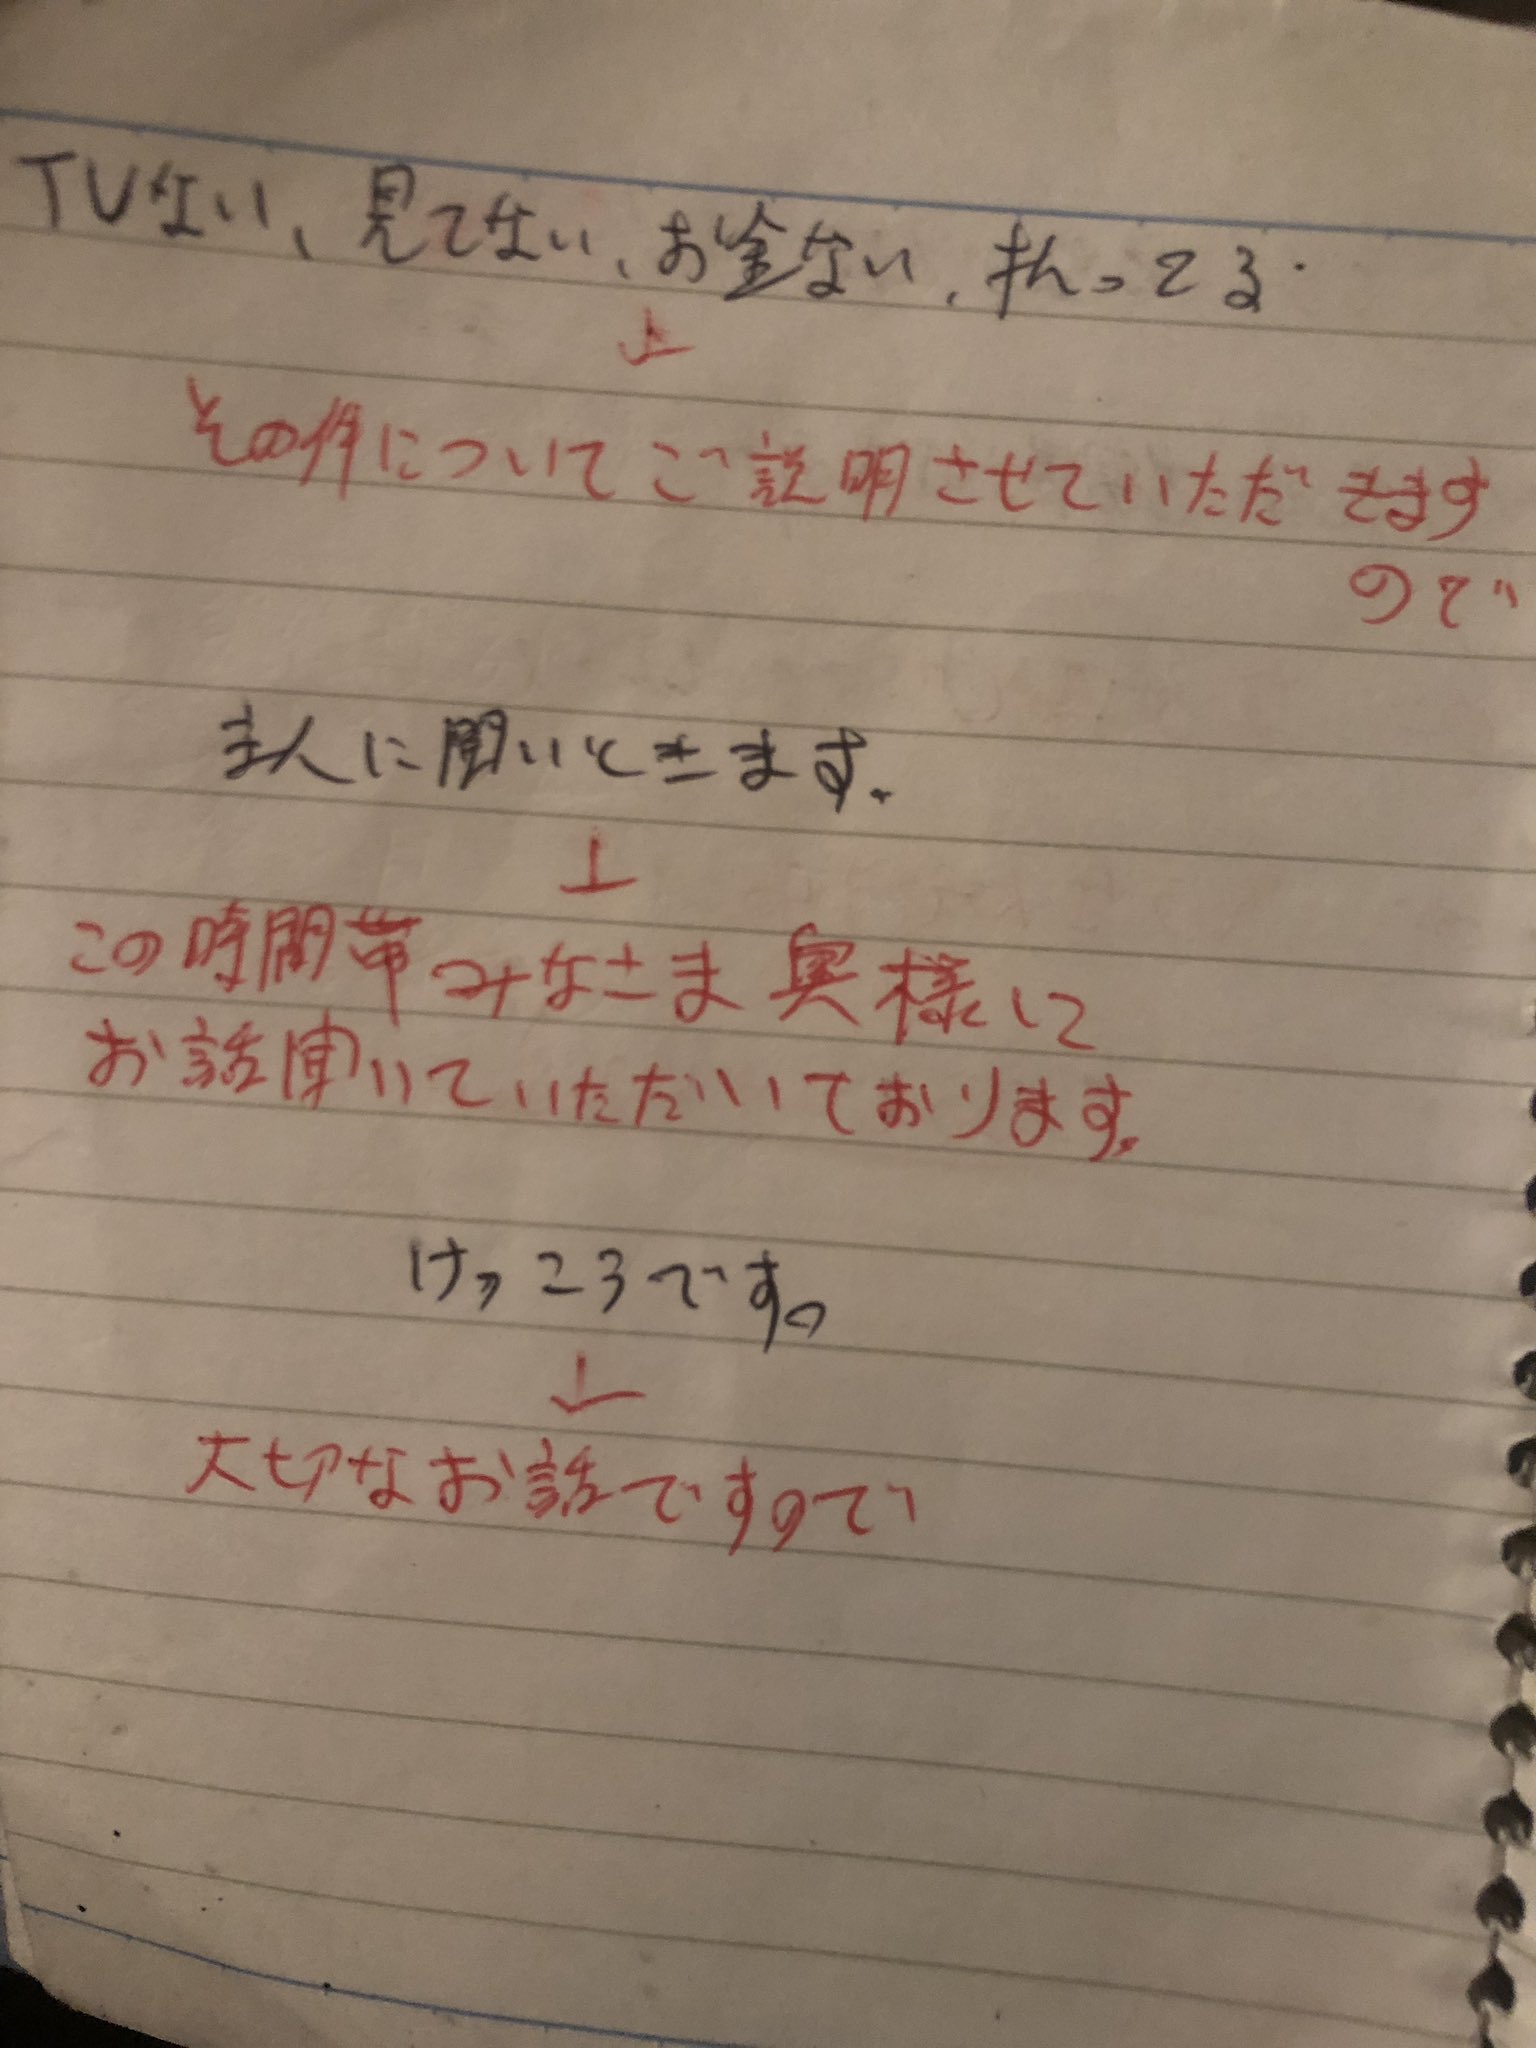 TVない、見てない、お金ない、払ってる.
その件についてご説明させていただきます
ので
主人に聞いときます。
この時間帯みなさま奥様に
お話聞いていただいております。
けっこうです。
大切なお話ですので